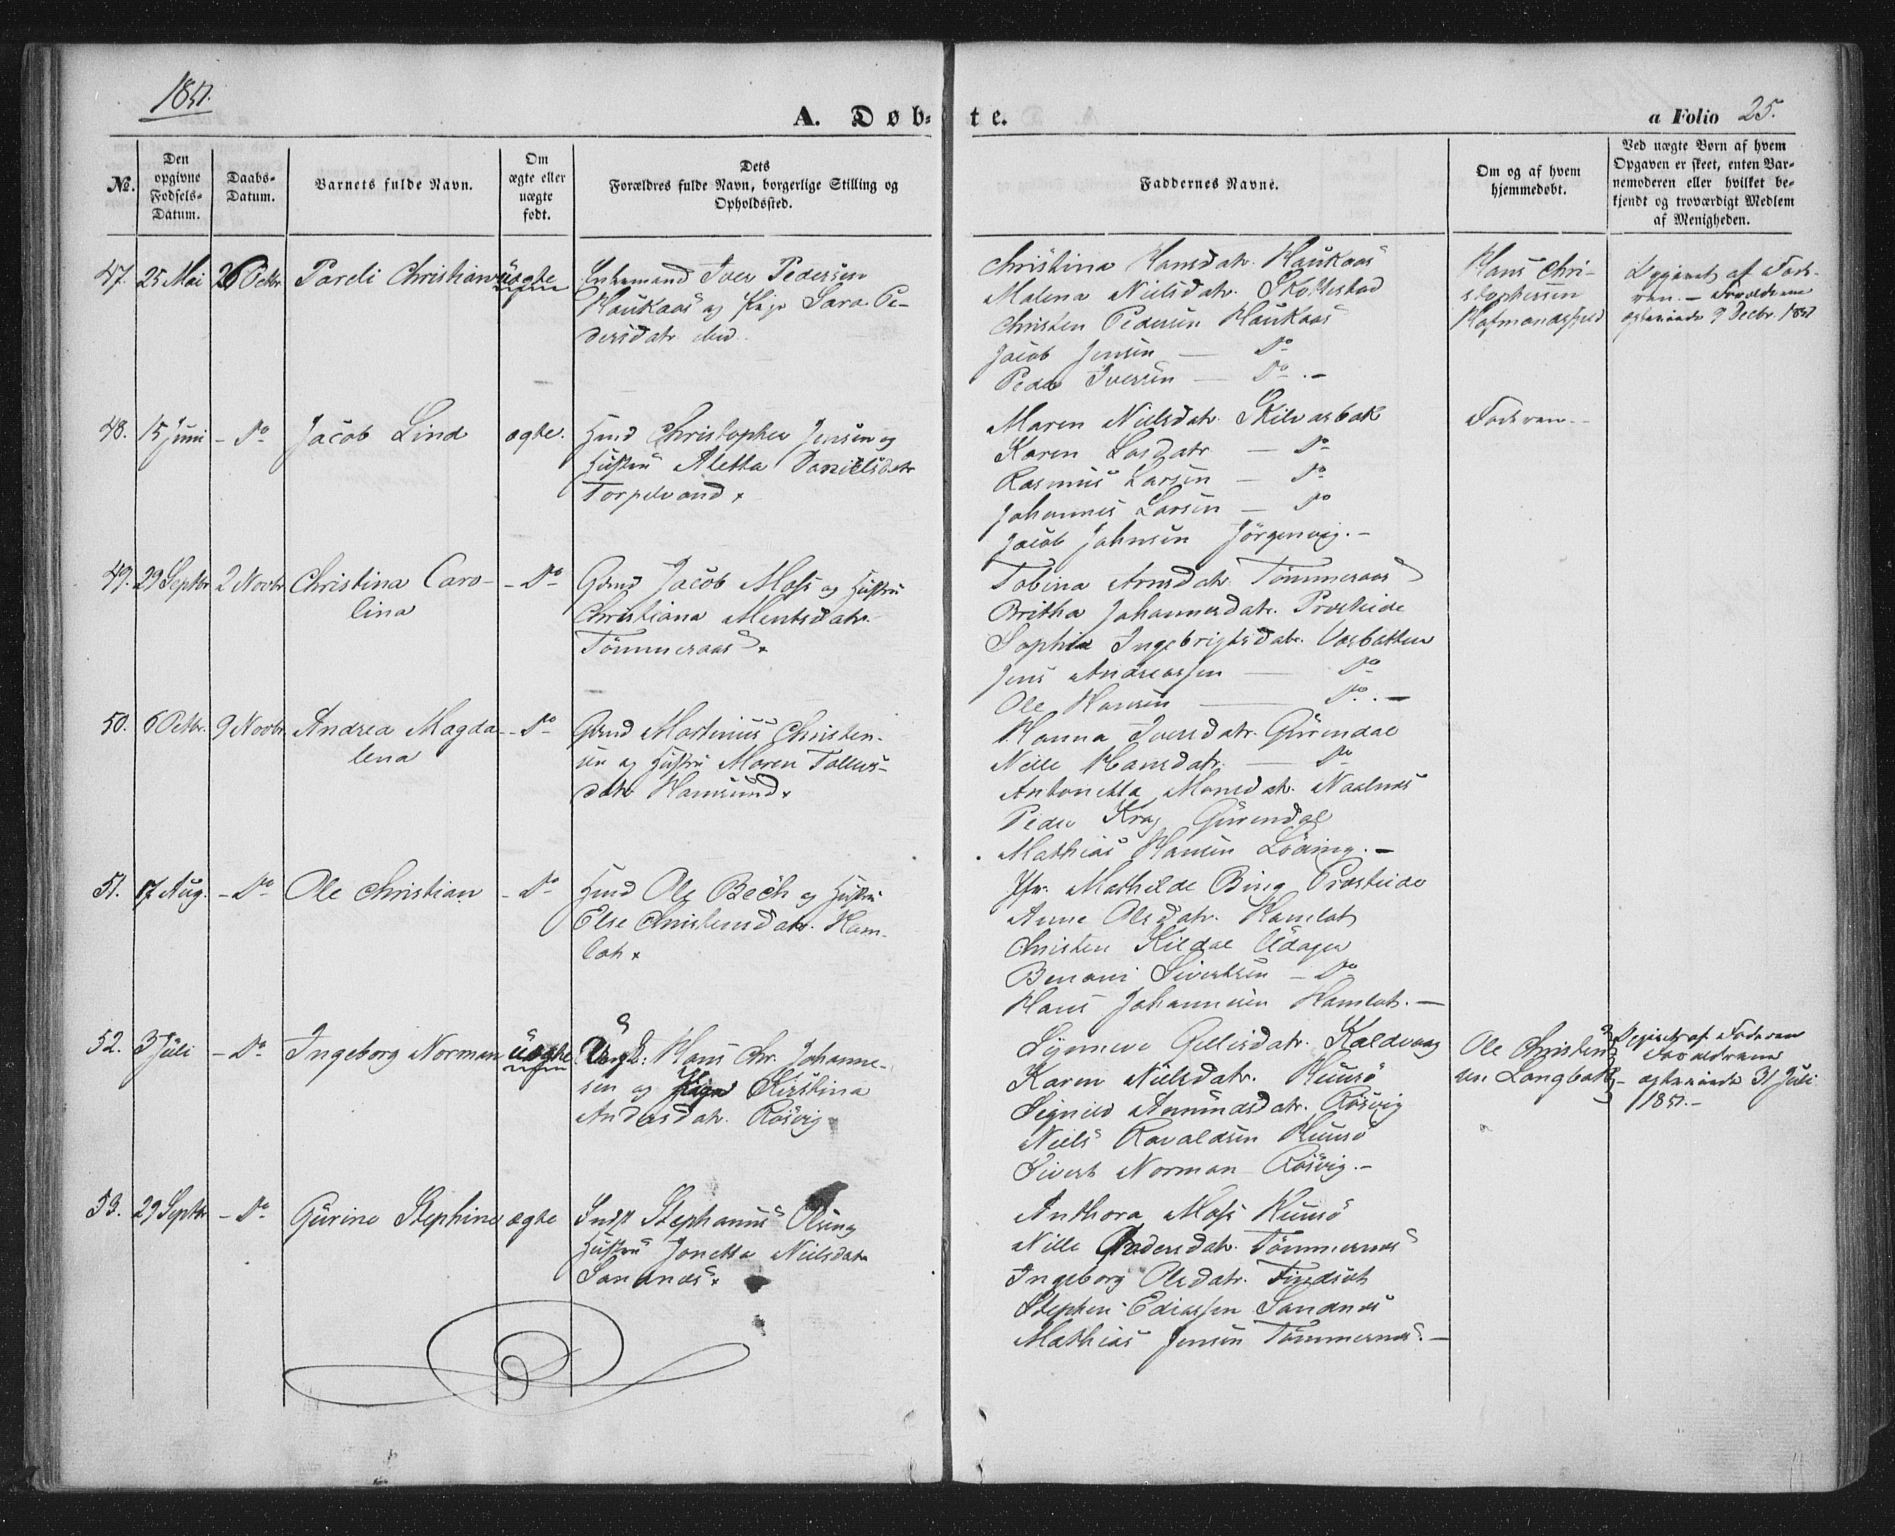 1851.
A. Døb-
te.
a Folio 25.
No.
Den opgivne Fødsels-Datum.
Daabs-Datum.
Barnets fulde Navn.
Om ægte eller uægte født.
Dets Forældres fulde Navn, borgerlige Stilling og Opholdssted.
Faddernes Navne.
Om og af hvem hjemmedøbt.
Ved uægte Børn af hvem Opgaven er skeet, enten Barnemoderen eller hvilket bekjendt og troværdigt Medlem af Menigheden.
47. 25 Mai 26 Octbr. Pareli Christian uægte
Enkemand Iver Pedersen
Haukaas og Pige Sara Pe-
dersdatr. ibid.
Christina Hansdatr. Haukaas
Malena Nielsdatr. Skottestad
Christen Pedersen Haukaas
Jacob Jensen — Do
Peder Iversen — Do. —
Hans Chri-
stophersen
Angivet af Fade-
ren. — Forældrene
ægteviede 9 Decbr. 1851
48. 15 Juni - Do Jacob Lind ægte.
Hmd Christopher Jensen og
Hustru Aletta Danielsdatr
Torpelvand
Maren Nielsdatr. Skilvasbak
Karen Larsdatr — Do
Rasmus Larsen — Do
Johannes Larsen — Do
Jacob Johnsen Jörgenvig. —
Faderen. —
49. 29 Septbr 2 Novbr Christina Caro- - Do
lina
Gmd Jacob Moss og Hustru
Christiana Mentsdatr.
Tömmeraas
Tobina Arnsdatr. Tömmeraas
Britha Johannesdatr. Presteide
Sophia Ingebrigtsdatr. Vasbotten
Jens Andreassen — Do
Ole Hansen — Do. —
50. 6 Octbr. 9 Novbr. Andrea Magda- - Do
lena
Gmd Martinus Christen-
sen og Hustru Maren Tollevs-
datr Hamsund
Hanna Iversdatr. Gürendal
Nille Hansdatr. — Do
Antonetta Monsdatr. Naalnæs
Peder Krag Gürendal
Mathias Hansen Löding. —
51. 17 Aug. - Do Ole Christian - Do
Hmd Ole Bech og Hustru
Else Christensdatr. Ham-
lot
Jfr. Mathilde Bing Presteide
Anne Olsdatr. Hamlot
Christen Kildal Udager
Benoni Sivertsen — Do
Hans Johannesen Hamlot. —
52. 3 Juli - Do Ingeborg Norman uægte
Ungk: Hans Chr. Johanne-
sen og Pige Kirstina
Andersdatr. Rösvig
Synneve Gellisdatr. Kaldvaag
Karen Nielsdatr. Huusö
Signild Amundsdatr. Rösvig
Niels Ravaldsen Huusö
Sivert Norman Rösvig. —
Ole Christen-
sen Langbak
Angivet af Faderen
Forældrene
ægteviede 31 Juli
1851. —
53. 29 Septbr - Do Gurine Stephine ægte
Indst Stephanus Olsen og
Hustru Jonetta Nielsdatr
Sandnæs
Anthora Moss Huusö
Nille Andersdatr. Tömmernæs
Ingeborg Olsdatr. Findset
Stephen Ediassen Sandnæs
Mathias Jensen Tömmernæs. —